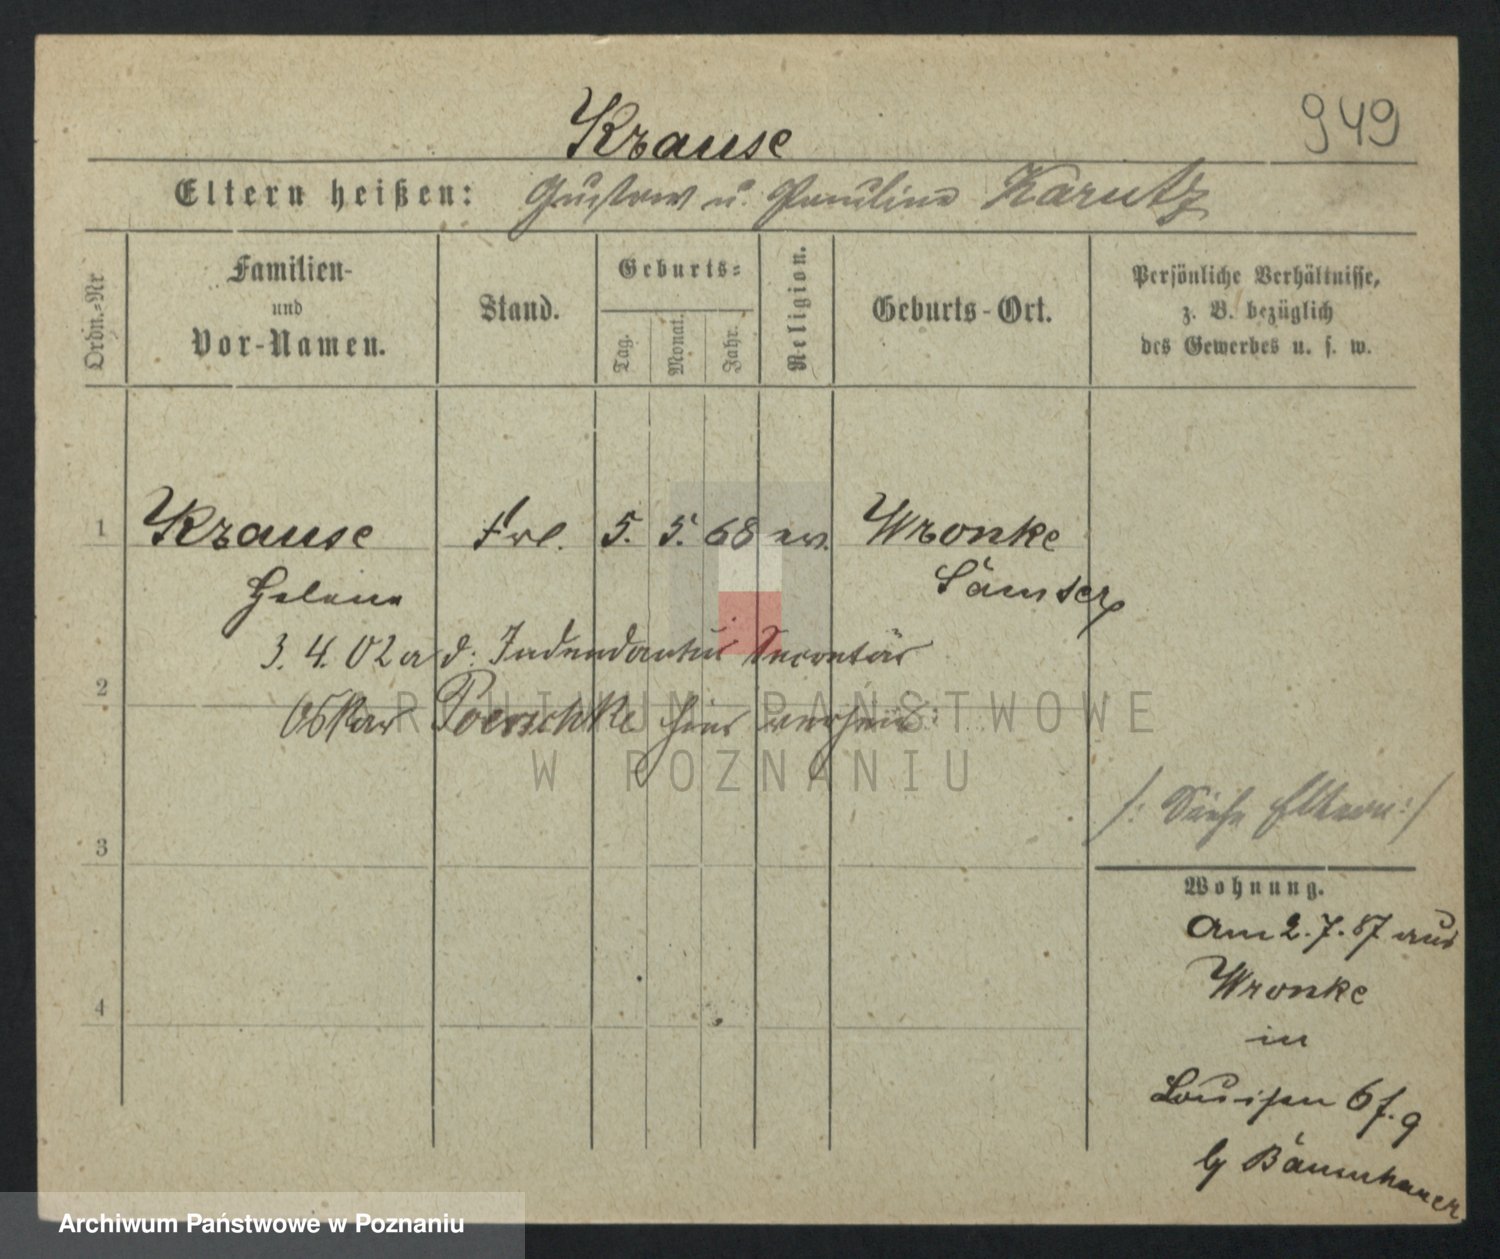 949
Krause
Eltern heißen: Gustav u. Pauline Karutz
Ordn.-Nr
Familien-
und
Vor-Namen.
Stand.
Geburts-
Tag.
Monat.
Jahr.
Religion.
Geburts-Ort.
Persönliche Verhältnisse,
z. B. bezüglich
des Gewerbes u. s. w.
1 Krause Frl. 5. 5. 68 ev. Wronke
Helene Samter
3. 4. 02 a d. Intendantur Secretär
2
Oskar Poerschke hier verheir:
ARCHIWUM PAŃSTWOWE
W POZNANIU
/: Siehe Eltern :/
3
Wohnung.
am 2. 7. 87 aus
Wronke
4
in
Louisen 6 f. 9
by Bäumhauer
Archiwum Państwowe w Poznaniu